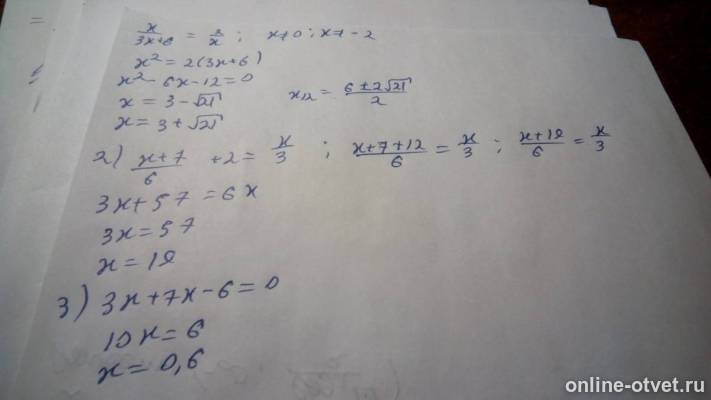 x/(3x+6) = 2/x ; x≠0 ; x≠-2
x² = 2(3x+6)
x² - 6x - 12 = 0
x = 3 - √21 x₁,₂ = (6 ± 2√21)/2
x = 3 + √21
2) (x+7)/6 + 2 = x/3 ; (x+7+12)/6 = x/3 ; (x+19)/6 = x/3
3x + 57 = 6x
3x = 57
x = 19
3) 3x + 7x - 6 = 0
10x = 6
x = 0,6
online-otvet.ru